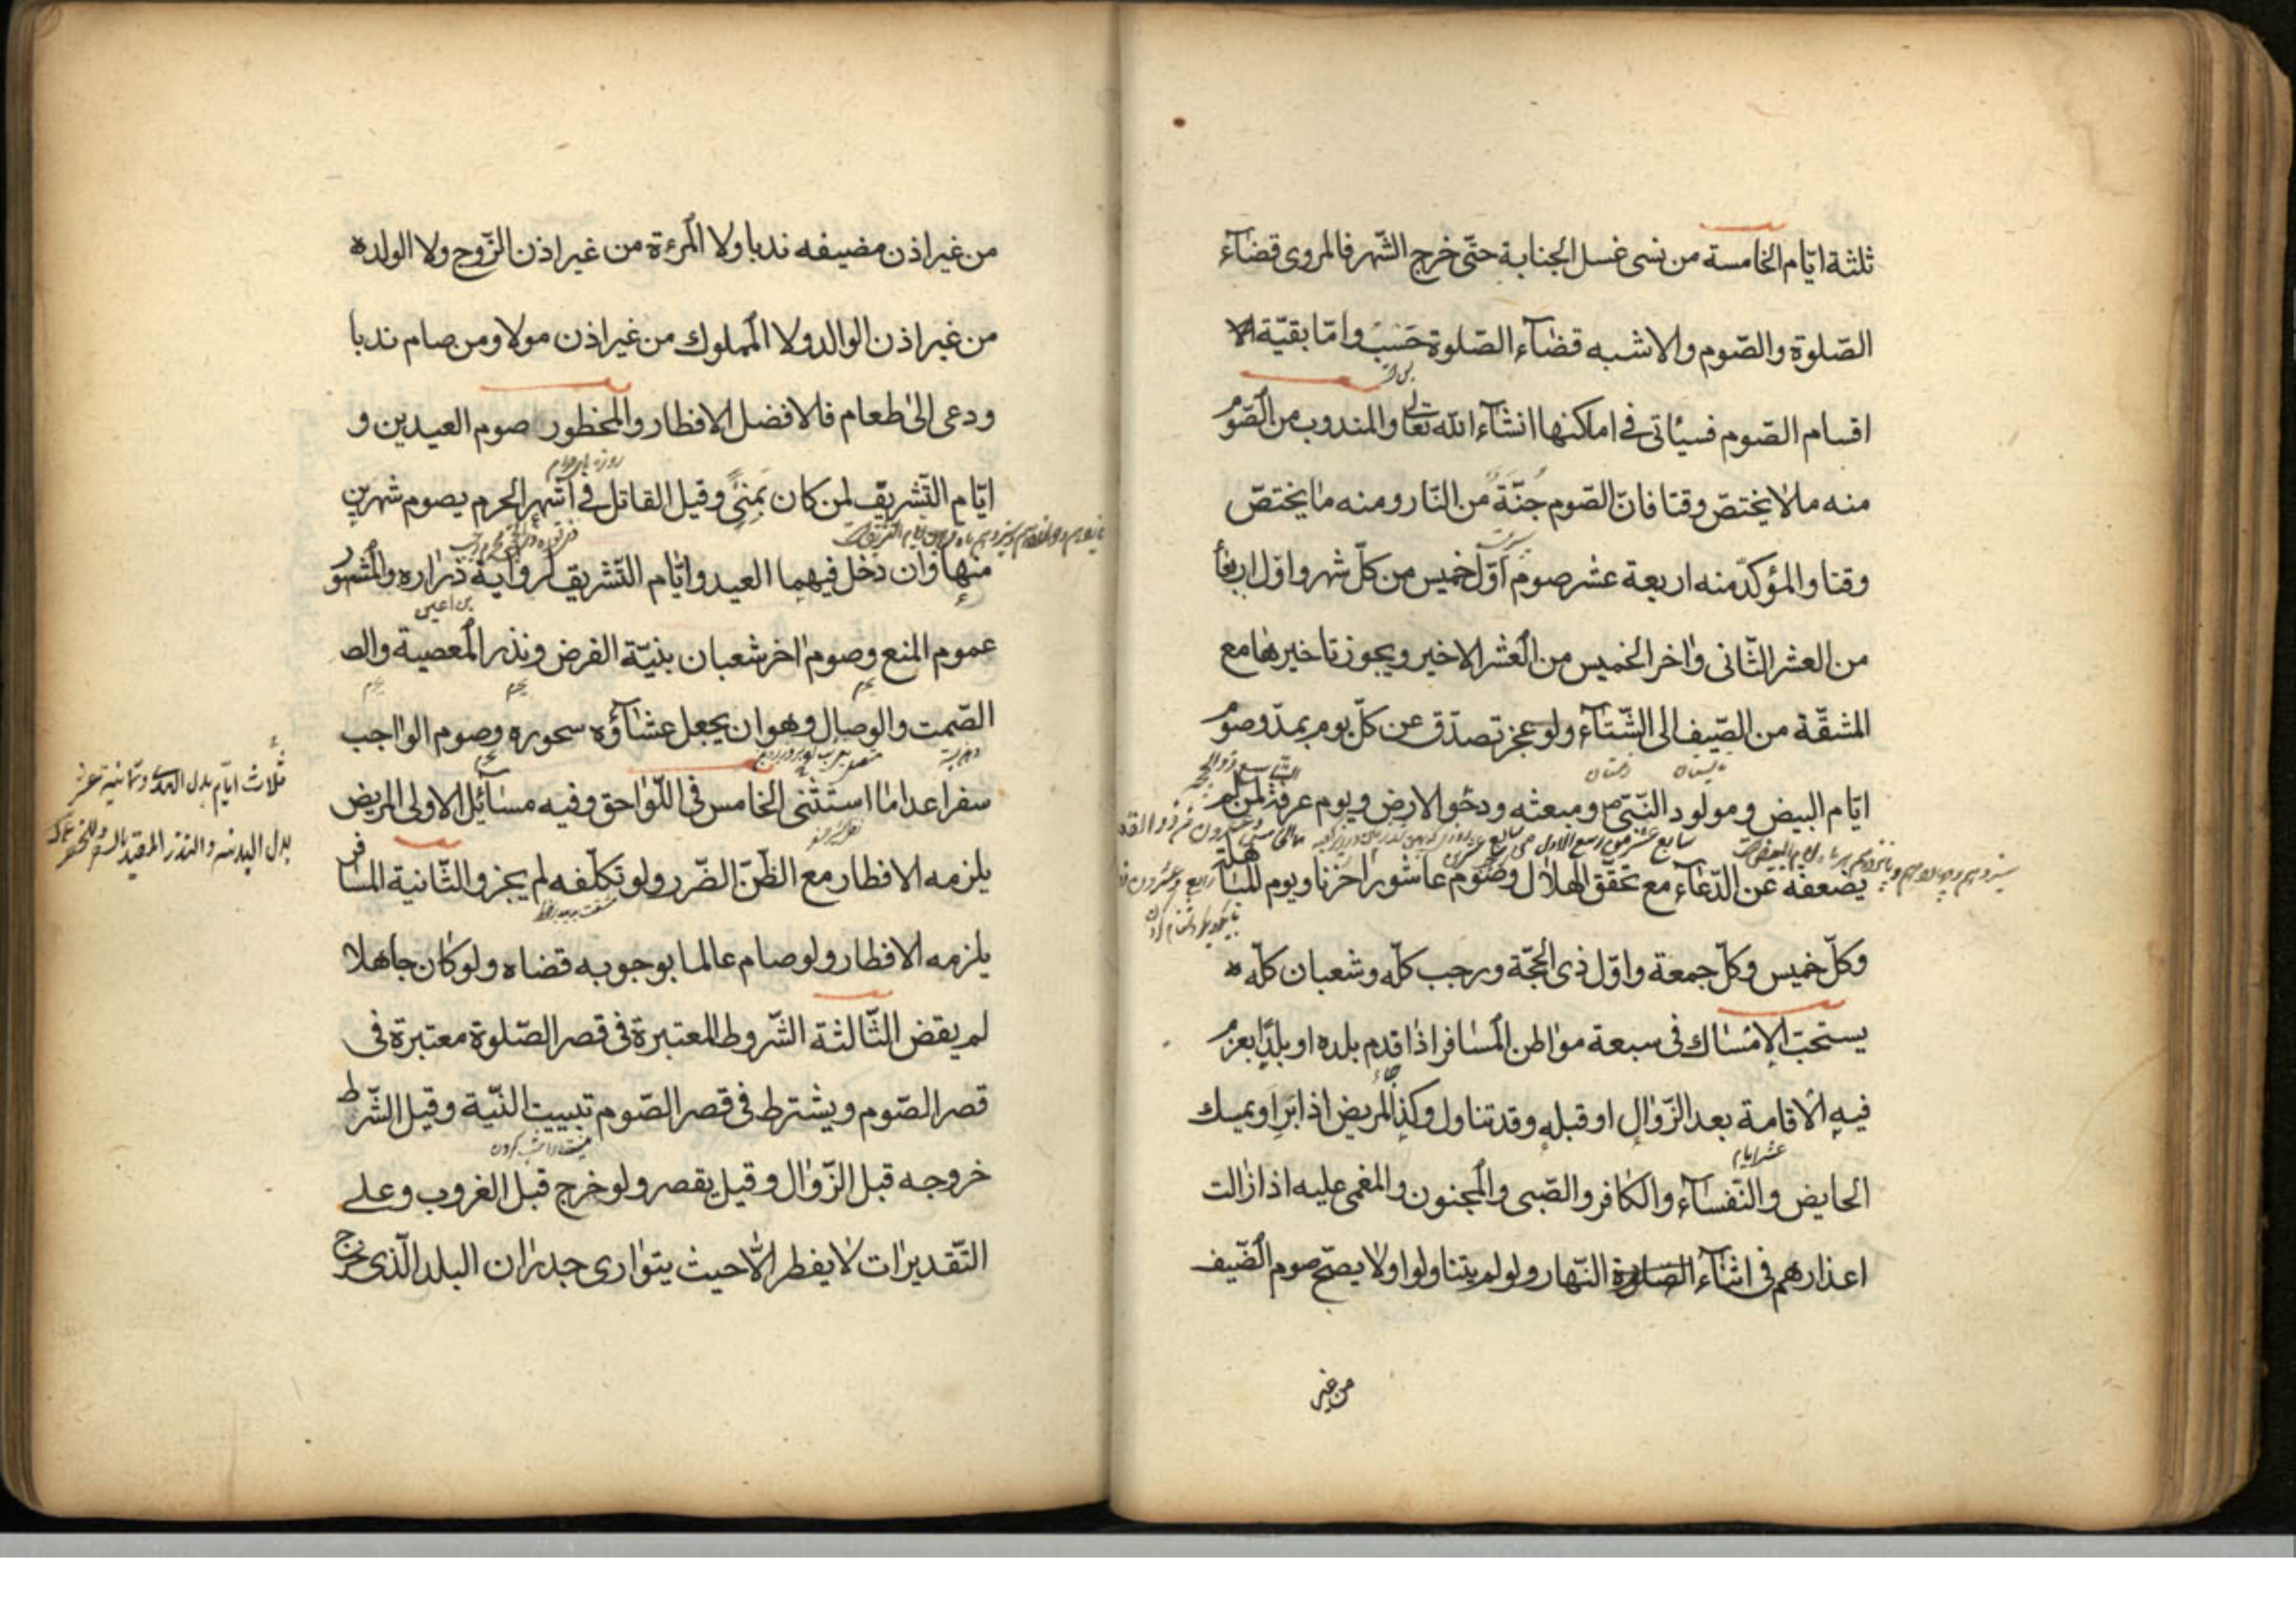 ثلثة ايّام الخامسة من نسى غسل الجنابة حتّى خرج الشّهر فالمروى قضاء
الصّلوة والصّوم والاشبه قضاء الصّلوة حَسَبْ وامّا بقيّة
اقسام الصّوم فسيأتى فى اماكنها انشاء الله تعالى والمندوب من الصّوم
منه ما لا يختصّ وقتا فانّ الصّوم جُنّةٌ من النّار ومنه ما يختصّ
وقتا والمؤكدّ منه اربعة عشر صوم اوّل خميس من كلّ شهر واوّل اربعا
من العشر الثّانى واخر الخميس من العشر الاخير ويجوز تاخيرها مع
المشقّة من الصّيف الى الشّتاء ولو عجز تصدّق عن كلّ يوم بمدّ وصوم
تابستان زمستان
ايّام البيض ومولود النّبىّ ومبعثه ودحو الارض ويوم عرفة لمن لم
يضعفه عن الدّعاء مع تحقّق الهلال وصوم عاشورا حزنا ويوم المباهلة
وكلّ خميس وكلّ جمعة واوّل ذى الحجّة ورجب كلّه وشعبان كلّه ه
يستحبّ الامساك فى سبعة مواطن المسافر اذا قدم بلده او بلدًا يعزم
فيه الاقامة بعد الزّوال او قبله وقد تناول وكذا المريض اذا برا ويمسك
عشر ايام
الحايض والنّفساء والكافر والصّبى والمجنون والمغمى عليه اذا زالت
اعذارهم فى اثناء الصلوة النّهار ولو لم يتناولوا ولا يصحّ صوم الضّيف
من غير
من غير اذن مضيفه ندبا ولا المرءة من غير اذن الزّوج ولا الولد ه
من غير اذن الوالد ولا المملوك من غير اذن مولاه ومن صام ندبا
ودعى الى طعام فالافضل الافطار والمحظور صوم العيدين و
ايّام التّشريق لمن كان بمنىً وقيل القاتل فى اشهر الحرم يصوم شهرين
منها وان دخل فيهما العيد وايّام التّشريق لرواية زراره والمشهور
بن اعين
عموم المنع وصوم اخر شعبان بنيّة الفرض ونذر المعصية والص
الصّمت والوصال وهو ان يجعل عشاؤه سحوره وصوم الواجب
سفرا عدا ما استثنى الخامس فى اللّواحق وفيه مسائل الاولى المريض
ثلاث ايّام بدل الهدى وثمانية عشر
بدل البدنه والنذر المقيد بالسفر والحضر
يلزمه الافطار مع الظّنّ الضّرر ولو تكلّفه لم يجز والثّانية المسافر
يلزمه الافطار ولو صام عالما بوجوبه قضاه ولو كان جاهلا
لم يقض الثّالثة الشّروط المعتبرة فى قصر الصّلوة معتبرة فى
قصر الصّوم ويشترط فى قصر الصّوم تبييت النّيّة وقيل الشّرط
خروجه قبل الزّوال وقيل يقصر ولو خرج قبل الغروب وعلى
التّقديرات لا يفطر الّا حيث يتوارى جدران البلد الّذى خرج